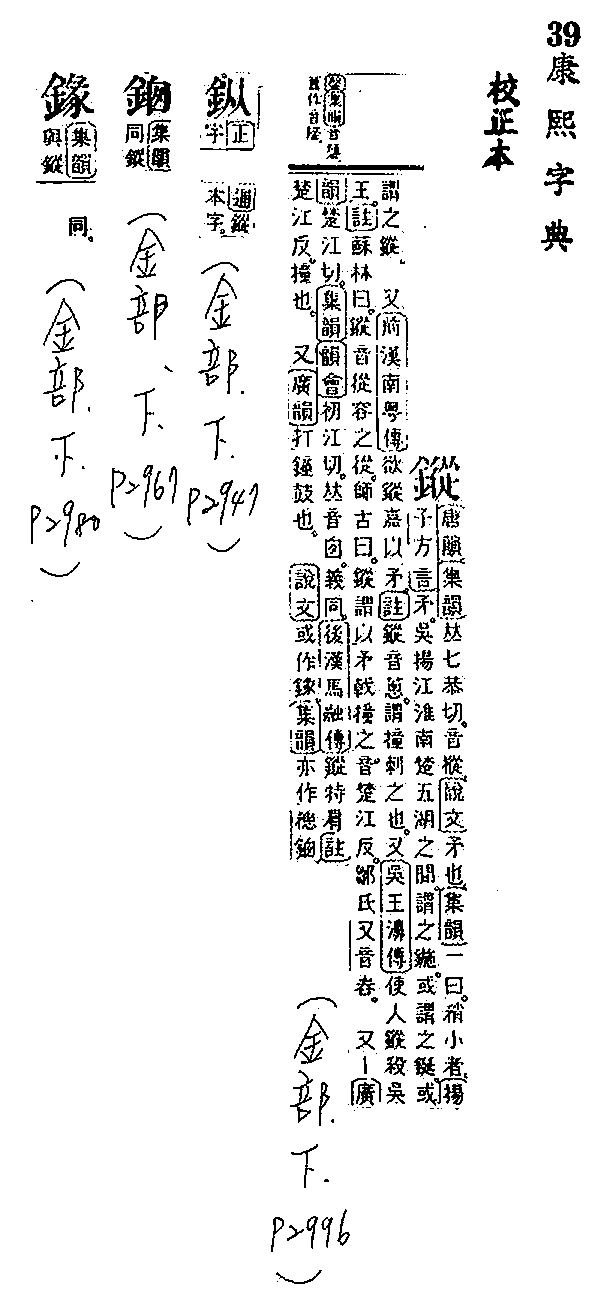 39
康熙字典
校正本
鏦
唐韻集韻𠀤七恭切。音樅。說文矛也。集韻一曰。稍小者。揚
子方言矛。吳揚江淮南楚五湖之閒。謂之鍦。或謂之鋋。或
謂之鏦。 又前漢南粵傳欲鏦嘉以矛。註鏦音窻。謂撞刺之也。又吳王濞傳使人鏦殺吳
王。註蘇林曰。鏦音從容之從。師古曰。鏦謂以矛戟撞之。音楚江反。鄒氏又音舂。 又廣
韻楚江切。集韻韻會初江切。𠀤音囱。義同。後漢馬融傳鏦特肩註
楚江反。撞也。 又廣韻打鐘鼓也。 說文或作錄。集韻亦作
(金部.下.P2996)
正字通鏦本字。
(金部.下.P2947)
集韻同鏦
(金部、下.P2967)
集韻與鏦同。
(金部.下.P2980)